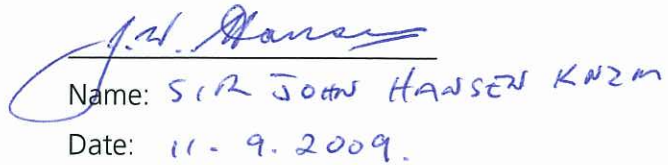 J.W. Hansen
Name: SIR JOHN HANSEN KNZM
Date: 11. 9. 2009.